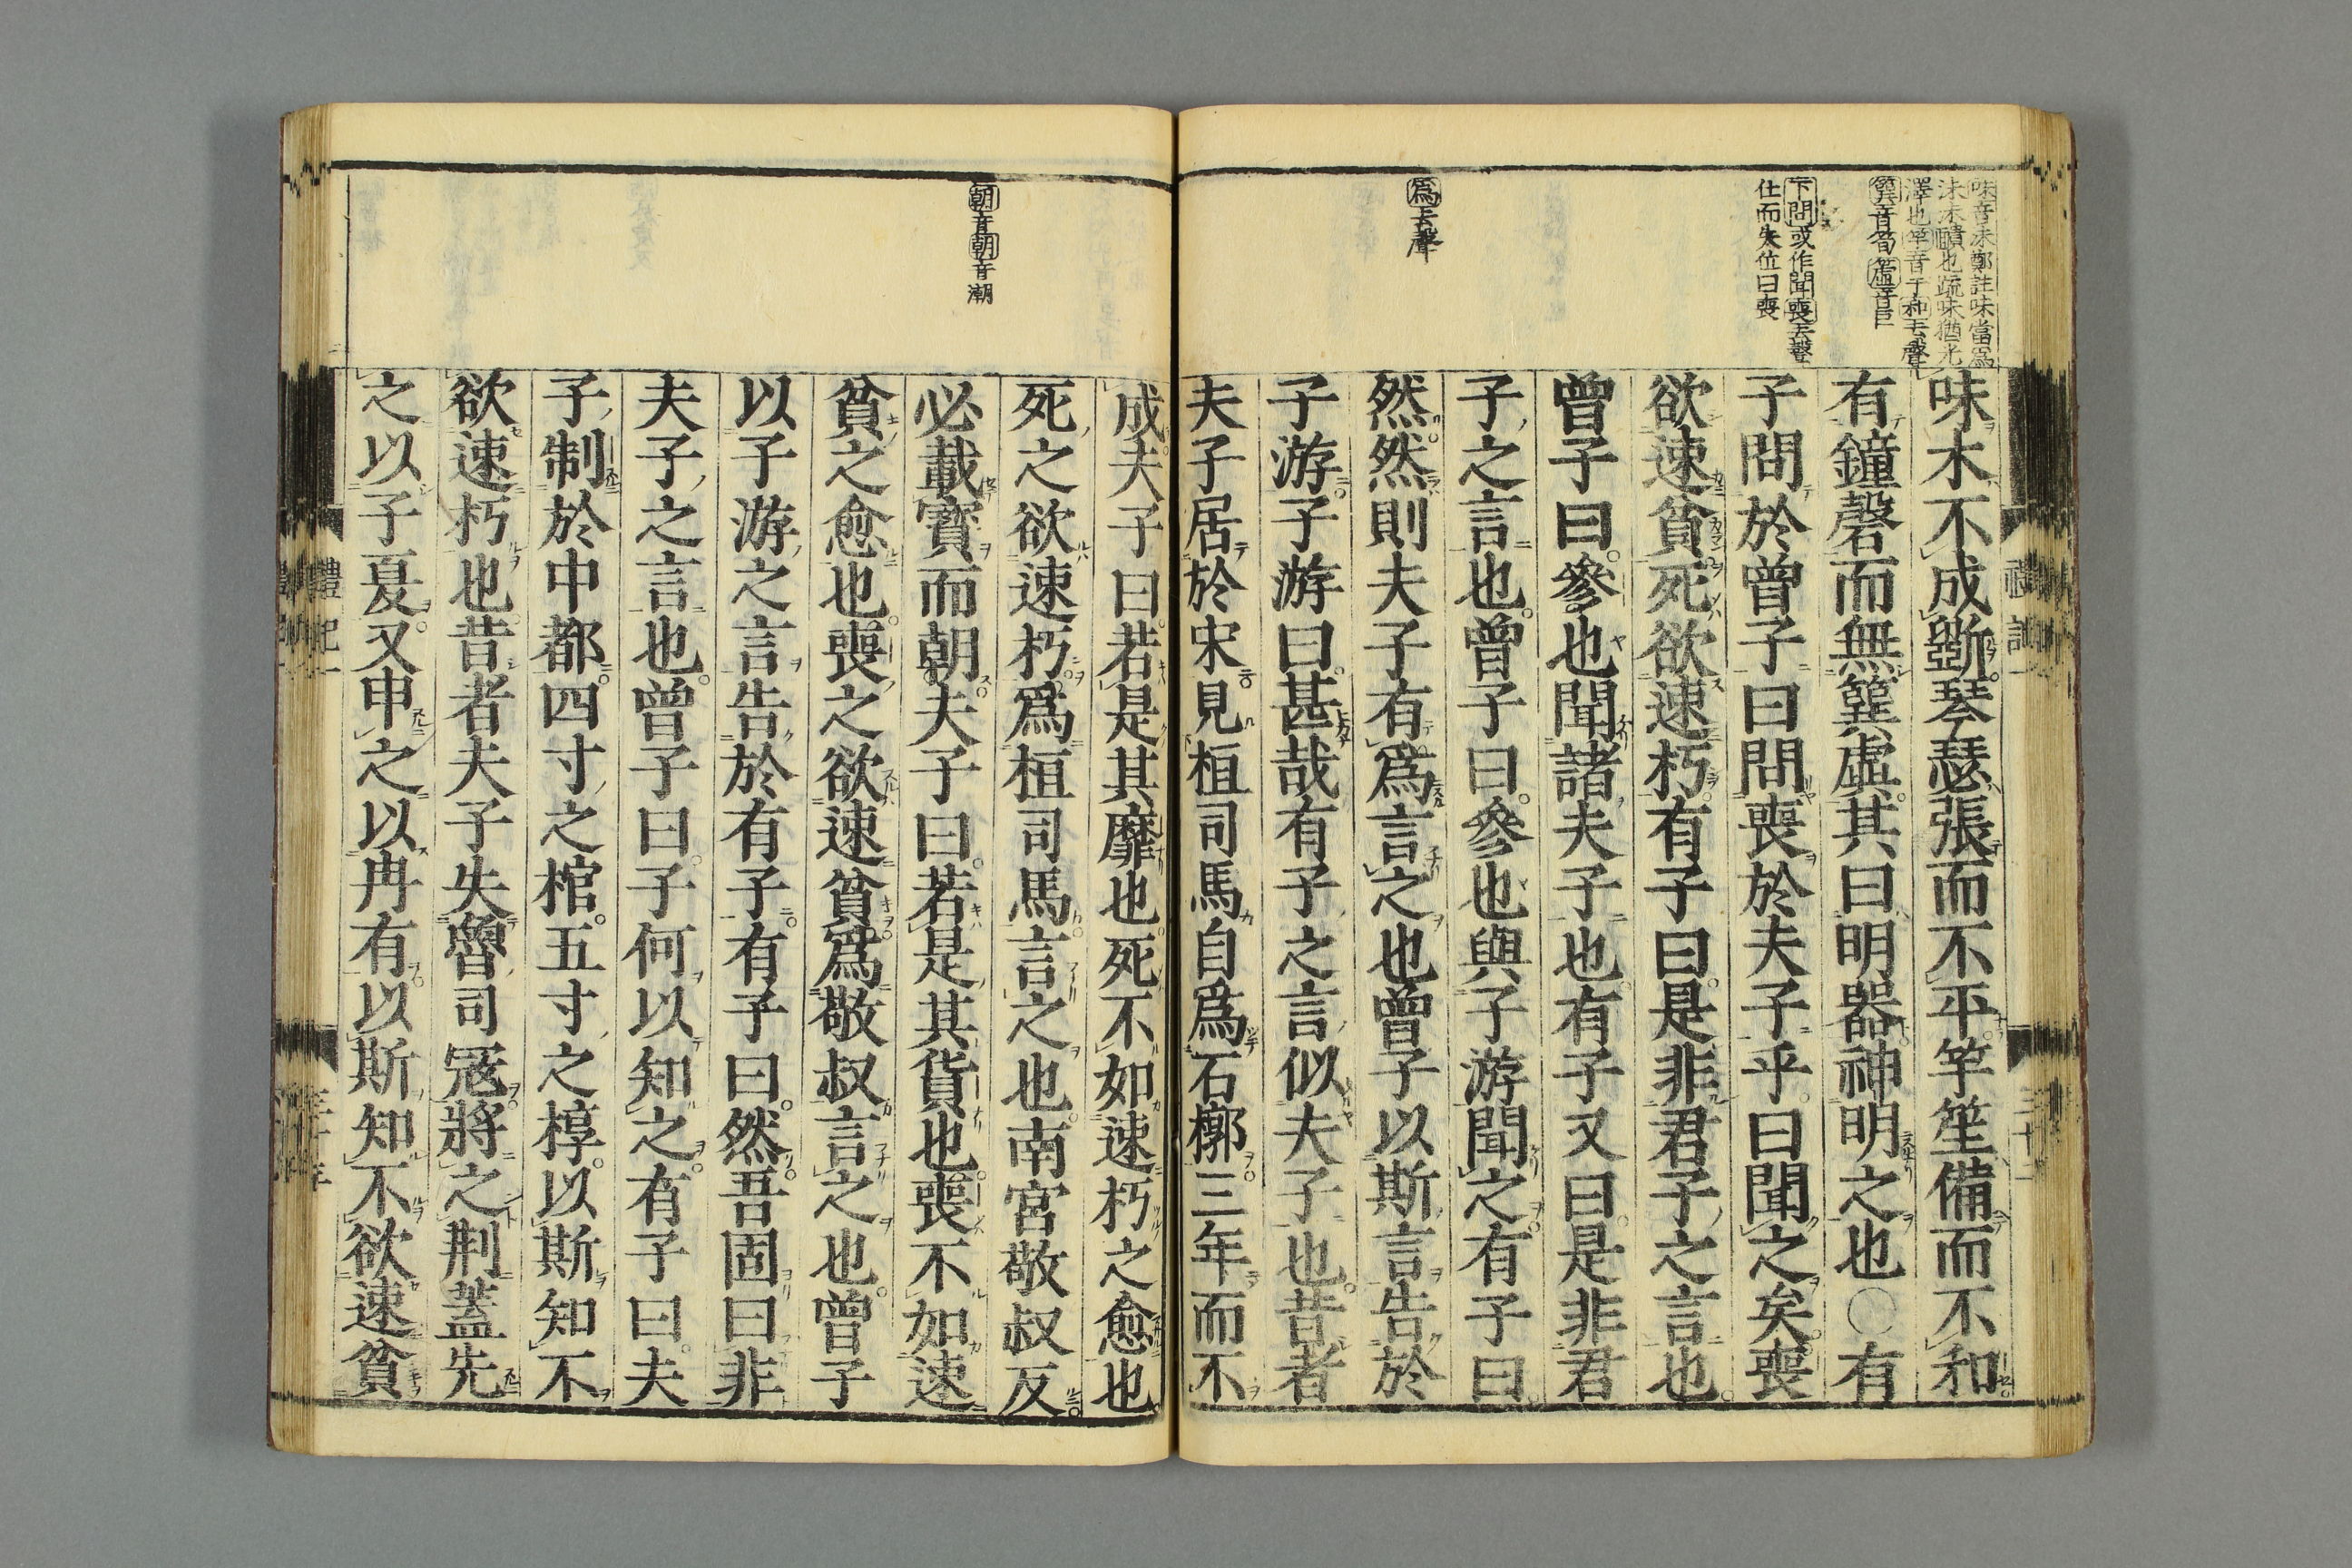 味音沫鄭註味當爲
沬沬靧也疏味猶光
澤也竽音于和去聲
簨音筍虡音巨
下問或作聞喪去聲
仕而失位曰喪
爲去聲
味木不成斲琴瑟張而不平竽笙備而不和
有鐘磬而無簨虡其曰明器神明之也〇有
子問於曾子曰問喪於夫子乎曰聞之矣喪
欲速貧死欲速朽有子曰是非君子之言也
曾子曰參也聞諸夫子也有子又曰是非君
子之言也曾子曰參也與子游聞之有子曰
然然則夫子有爲言之也曾子以斯言告於
子游子游曰甚哉有子之言似夫子也昔者
夫子居於宋見桓司馬自爲石槨三年而不
朝音朝音潮
成夫子曰若是其靡也死不如速朽之愈也
死之欲速朽爲桓司馬言之也南宮敬叔反
必載寶而朝夫子曰若是其貨也喪不如速
貧之愈也喪之欲速貧爲敬叔言之也曾子
以子游之言告於有子有子曰然吾固曰非
夫子之言也曾子曰子何以知之有子曰夫
子制於中都四寸之棺五寸之椁以斯知不
欲速朽也昔者夫子失魯司寇將之荆蓋先
之以子夏又申之以冉有以斯知不欲速貧
禮記一